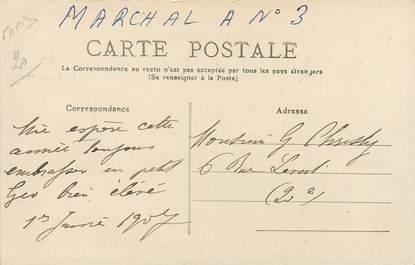 MARCHAL A N° 3
PARIS
20
CARTE POSTALE
La Correspondance au recto n'est pas acceptée par tous les pays étrangers
(Se renseigner à la Poste)
Correspondance
Adresse
espère cette
année toujours
embrasser un petit
Géo bien élevé
1er Janvier 1907
Monsieur G Christy
6 Rue
(20e)